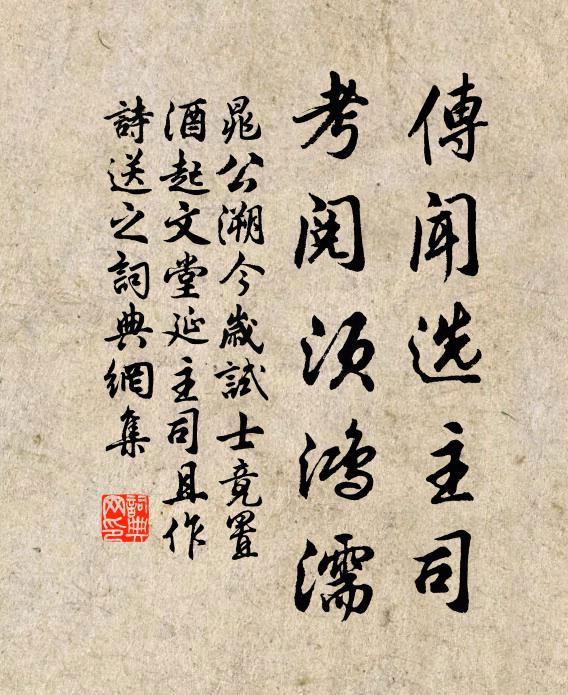 傳聞选主司
考閱須鴻濡
晁公溯今歲試士竟置
酒起文堂延主司且作
詩送之詞典網集
詞典网印